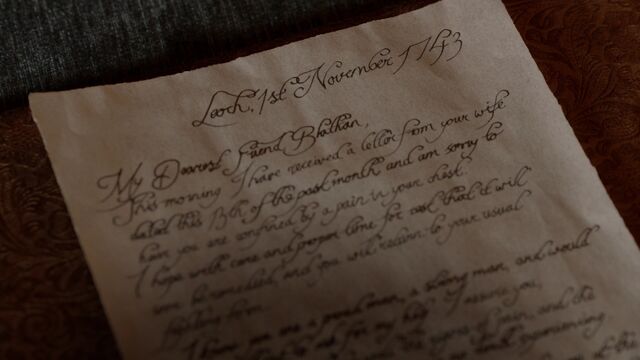 Leoch, 1st November 1743
My Dearest Friend Blathan,
This morning I have received a letter from your wife
dated this 13th of the past month and am sorry to
hear you are confined by a pain in your chest.
I hope with care and proper time for rest that it will
soon be remedied, and you will return to your usual
I know you are a proud man, a strong man, and would
for my help I assure you,
years of pain, and the